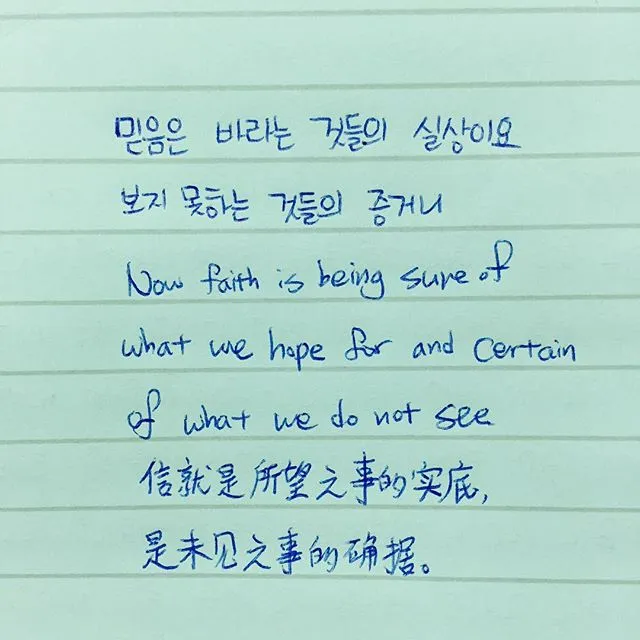 믿음은 바라는 것들의 실상이요
보지 못하는 것들의 증거니
Now faith is being sure of
what we hope for and certain
of what we do not see
信就是所望之事的实底,
是未见之事的确据。